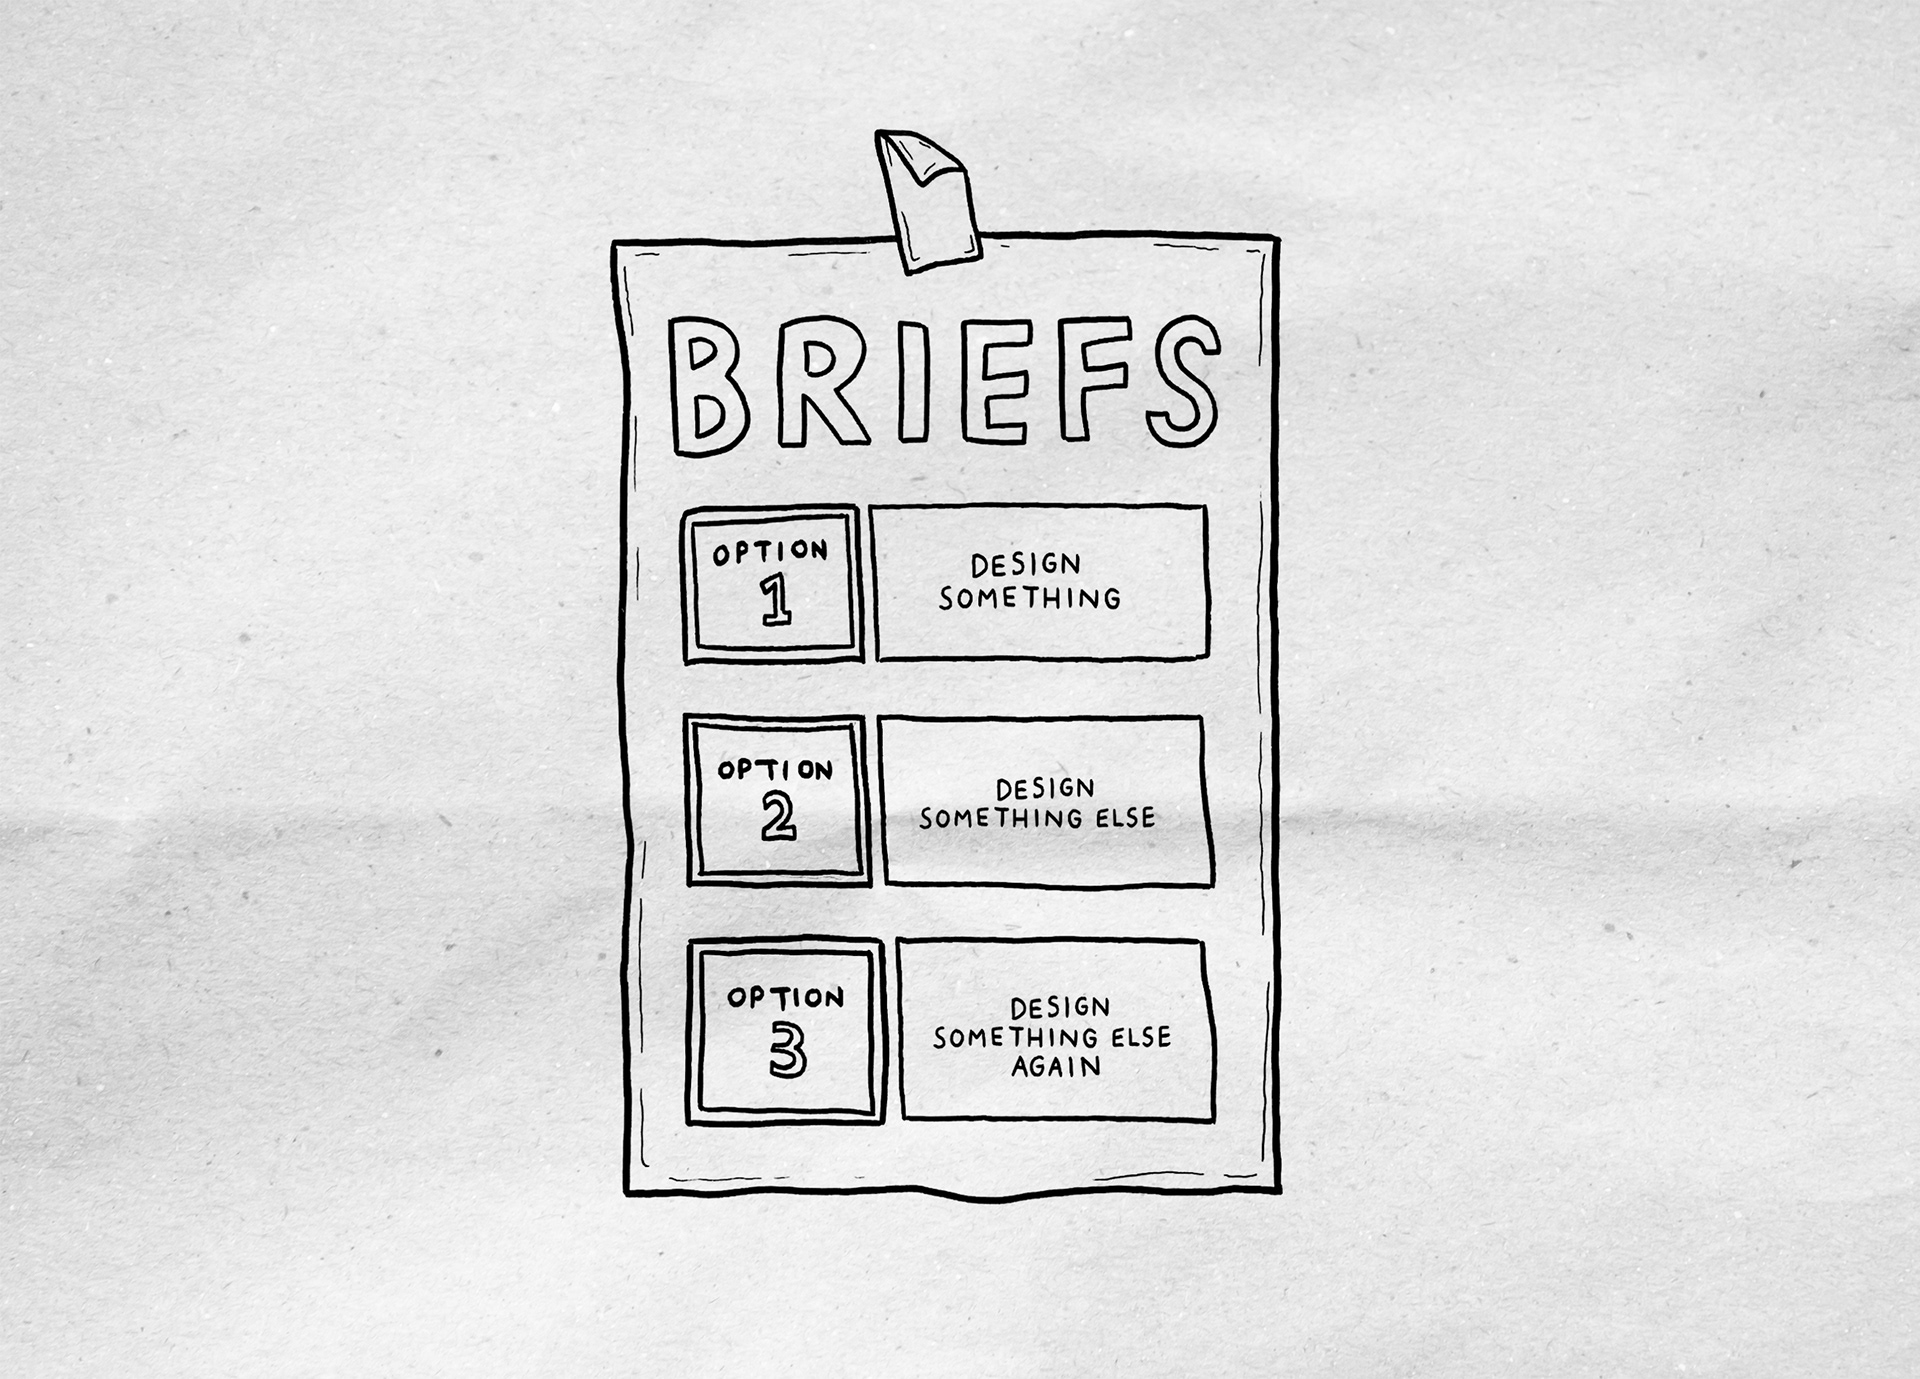 BRIEFS
OPTION
1
DESIGN
SOMETHING
OPTION
2
DESIGN
SOMETHING ELSE
OPTION
3
DESIGN
SOMETHING ELSE
AGAIN